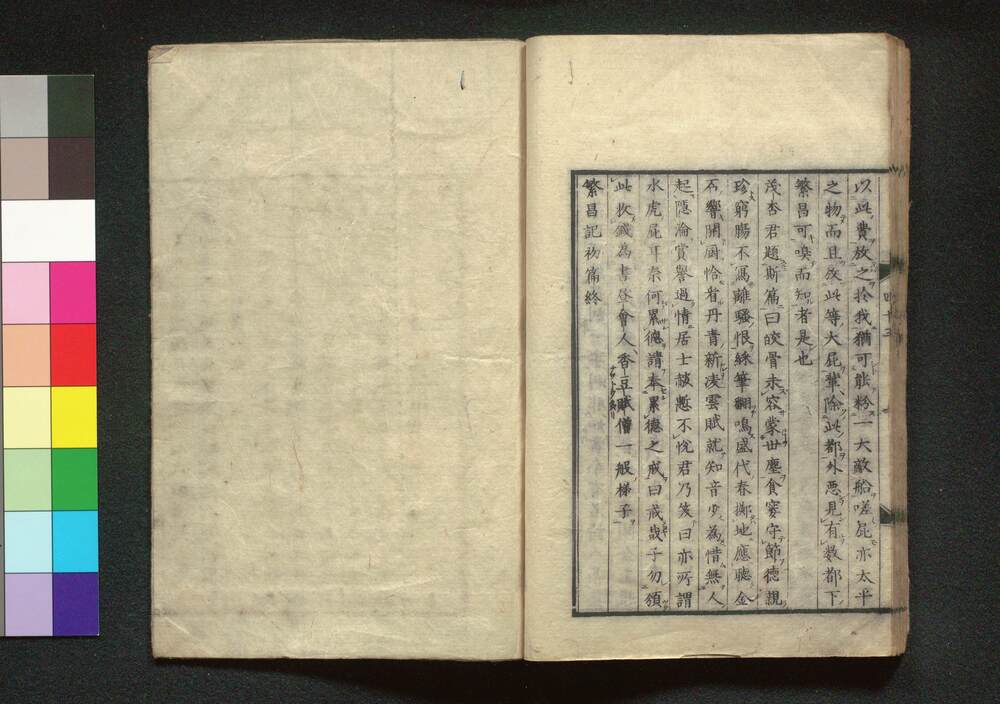 以此費放之於我猶可能粉一大敵船嗟屁亦太平
之物而且放此等大屁輩除此都外悪見有数都下
繁昌可嗅而知者是也
茂杏君題斯篇曰皎骨未容蒙世塵食寠守節徳親
珍窮腸不馮離騒恨綵筆翻鳴盛代春擲地應聴金
石響開函恰看丹青新凌雲賦就知音少為惜無人
起隠淪賞誉過情居士赧慙不悦君乃笑曰亦所謂
水虎屁耳奈何累徳請奉累徳之戒曰戒哉子勿頻
此收錢為書昼會人香豆賦僧一般様子
繁昌記初篇終